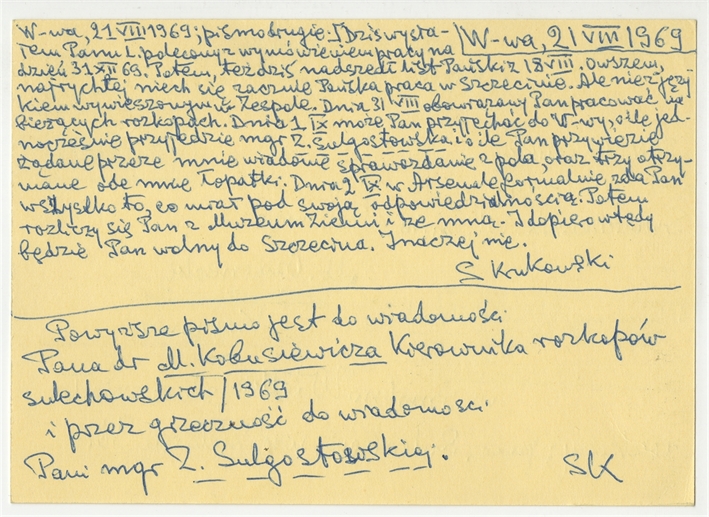 W-wa, 21 VIII 1969; pismo drugie. Dziś wysła-
łem Panu l. polecony z wymówieniem pracy na W-wa, 21 VIII 1969
dzień 31 XII 69. Potem, też dziś nadszedł list Pański z 18 VIII. Owszem,
najrychlej niech się zacznie Pańska praca w Szczecinie. Ale nie z języ
kiem wywieszonym w Zespole. Dnia 31 VIII obowiązany Pan pracować na
bieżących rozkopach. Dnia 1 IX może Pan przyjechać do W-wy, o ile jed-
nocześnie przyjedzie mgr Z. Sulgostowska, i o ile Pan przywiezie
żądane przeze mnie wiadome sprawozdanie z pola, oraz trzy otrzy-
mane ode mnie łopatki. Dnia 2 IX w Arsenale formalnie zda Pan
wszystko to, co miał pod swoją odpowiedzialnością. Potem
rozliczy się Pan z Muzeum Ziemi i ze mną. I dopiero wtedy
będzie Pan wolny do Szczecina. Inaczej nie.
S Krukowski
Powyższe pismo jest do wiadomości
Pana dr M. Kobusiewicza Kierownika rozkopów
sulechowskich / 1969
i przez grzeczność do wiadomości
Pani mgr Z. Sulgostowskiej.
SK